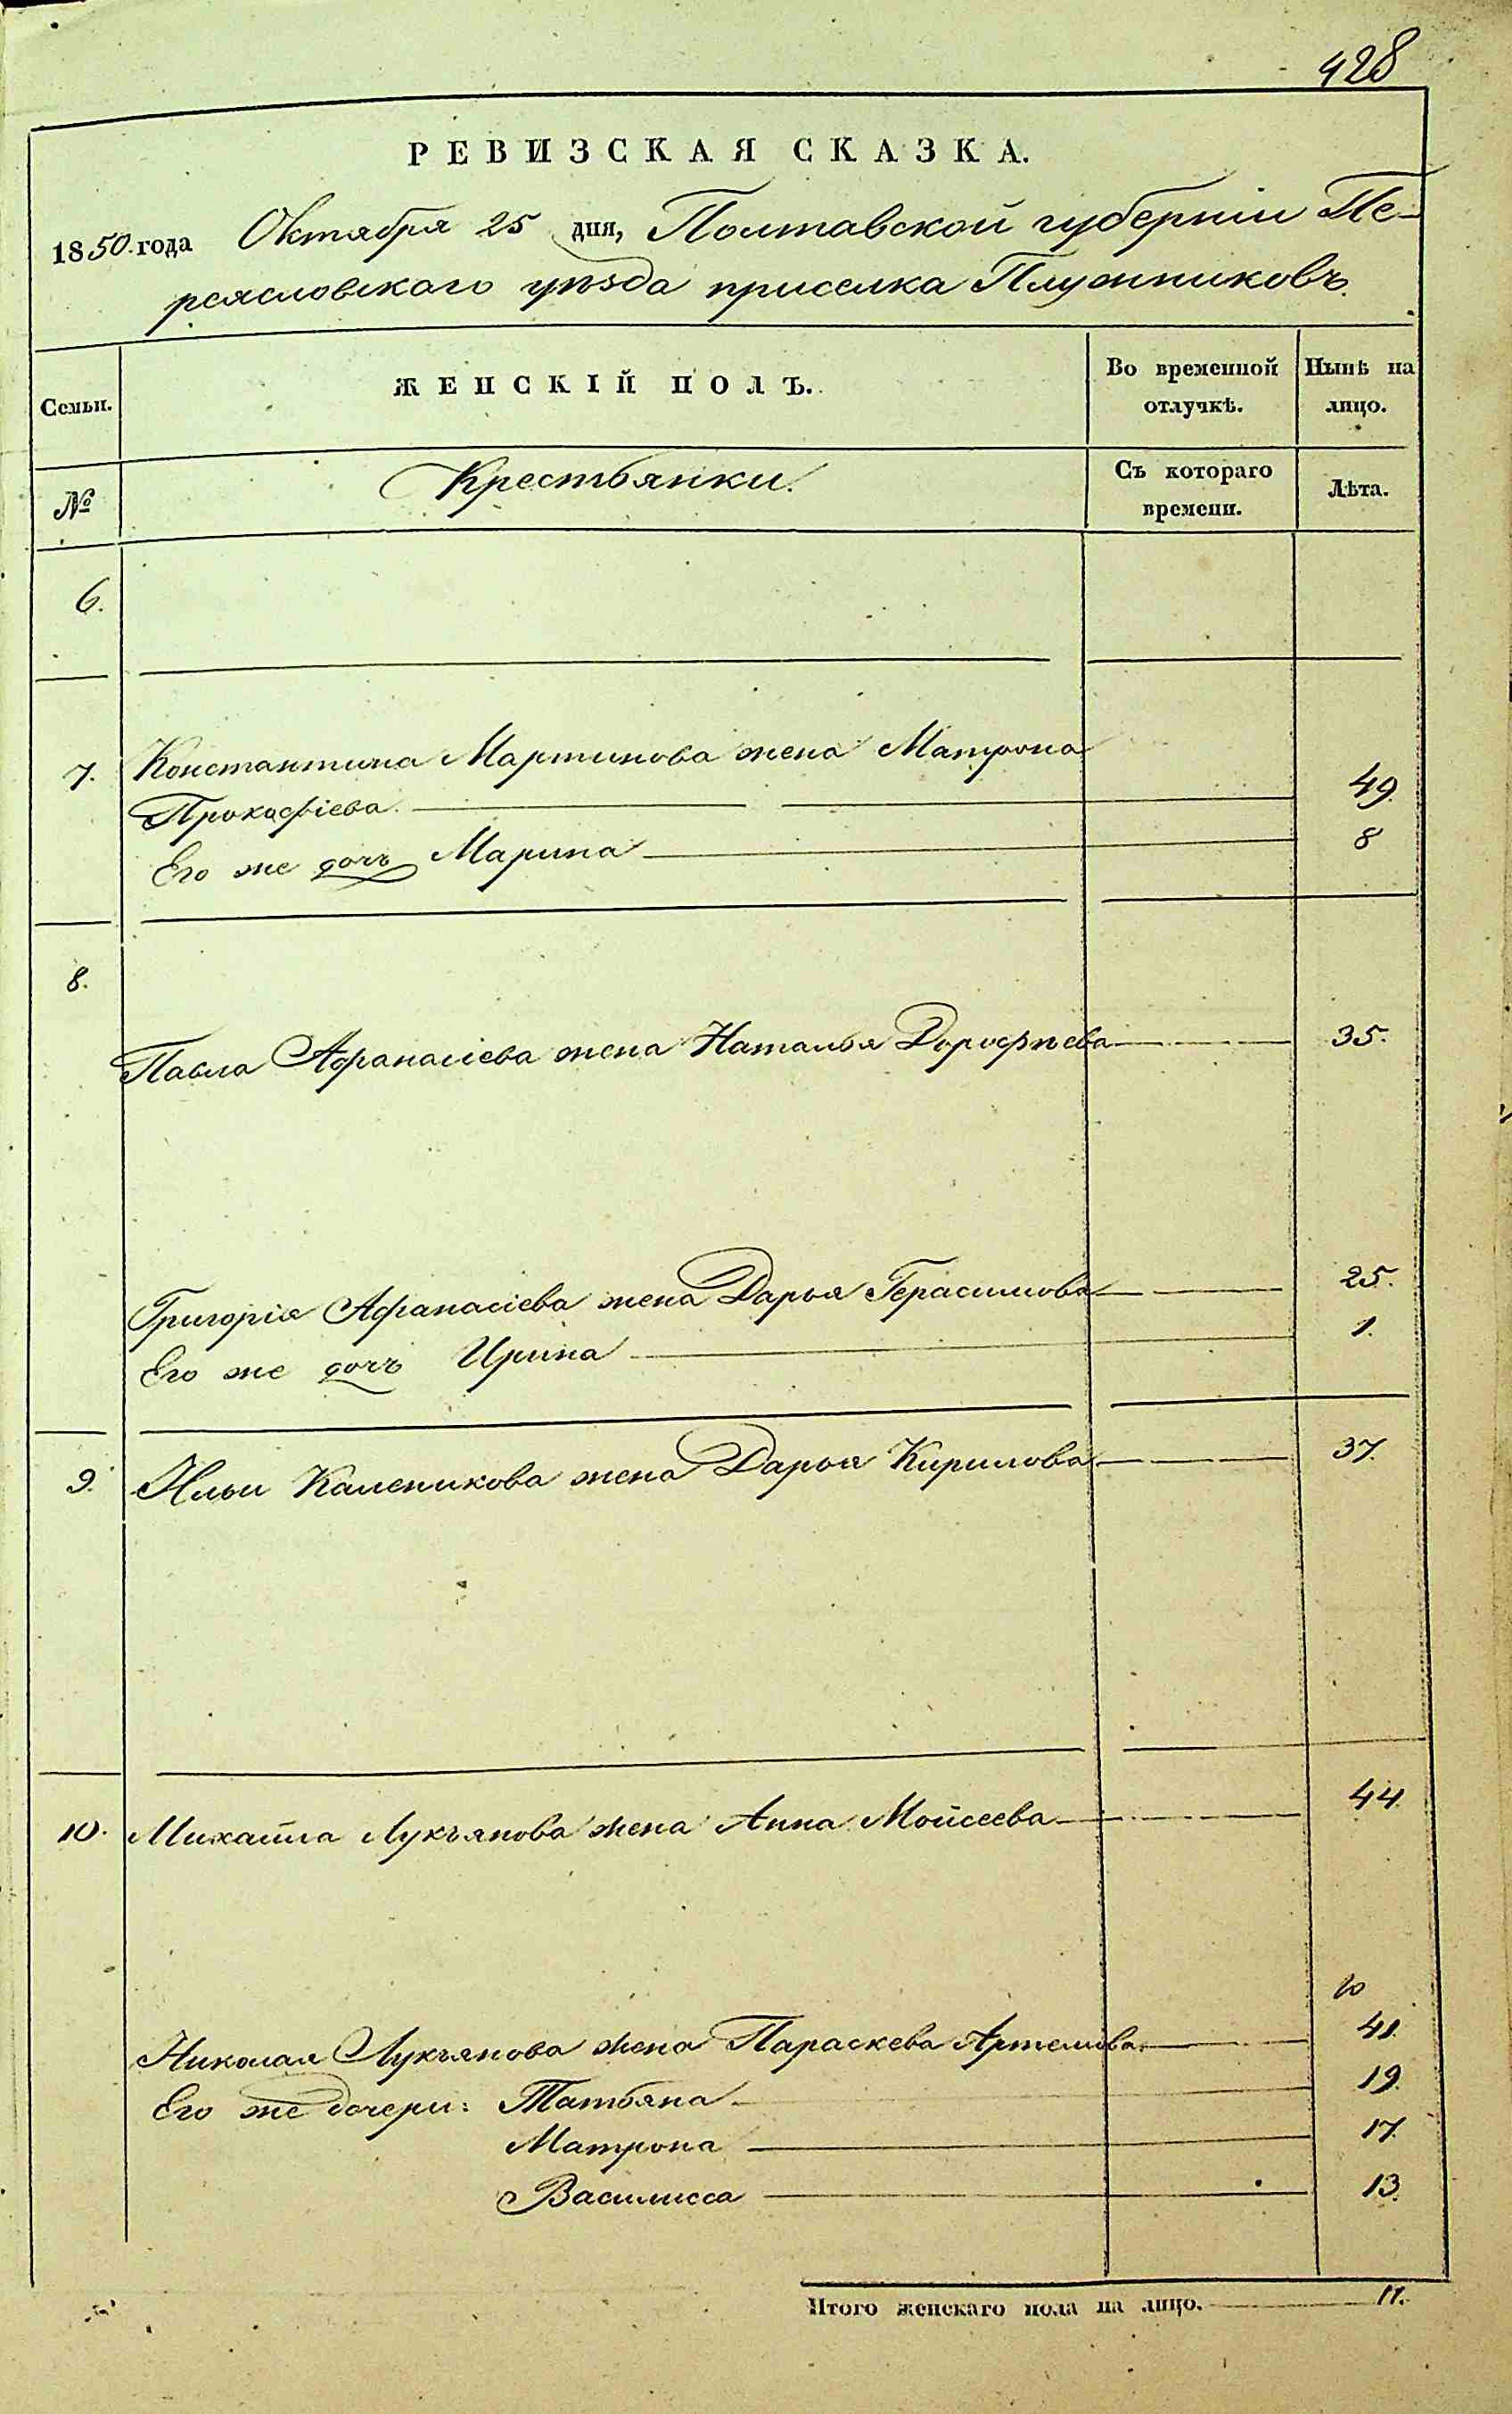 428
РЕВИЗСКАЯ СКАЗКА.
1850 года Октября 25 дня, Полтавской губерніи Пе-
реясловскаго уѣзда приселка Плужниковъ.
Семьи.
ЖЕНСКІЙ ПОЛЪ.
Во временной отлучкѣ.
Нынѣ на лицо.
№
Крестьянки.
Съ котораго времени.
Лѣта.
6.
7. Константина Мартинова жена Матрона
Прокофіева 49.
Его же дочь Марина 8
8.
Павла Афанасіева жена Наталья Дорофѣева 35.
Григорія Афанасіева жена Дарья Герасимова 25.
Его же дочь Ирина 1.
9. Ильи Каленикова жена Дарья Кирилова 37.
10. Михайла Лукъянова жена Анна Мойсеева 44.
Николая Лукъянова жена Параскева Артемова 41.
Его же дочери: Татьяна 19.
Матрона 17.
Василисса 13.
Итого женскаго пола на лицо. 11.